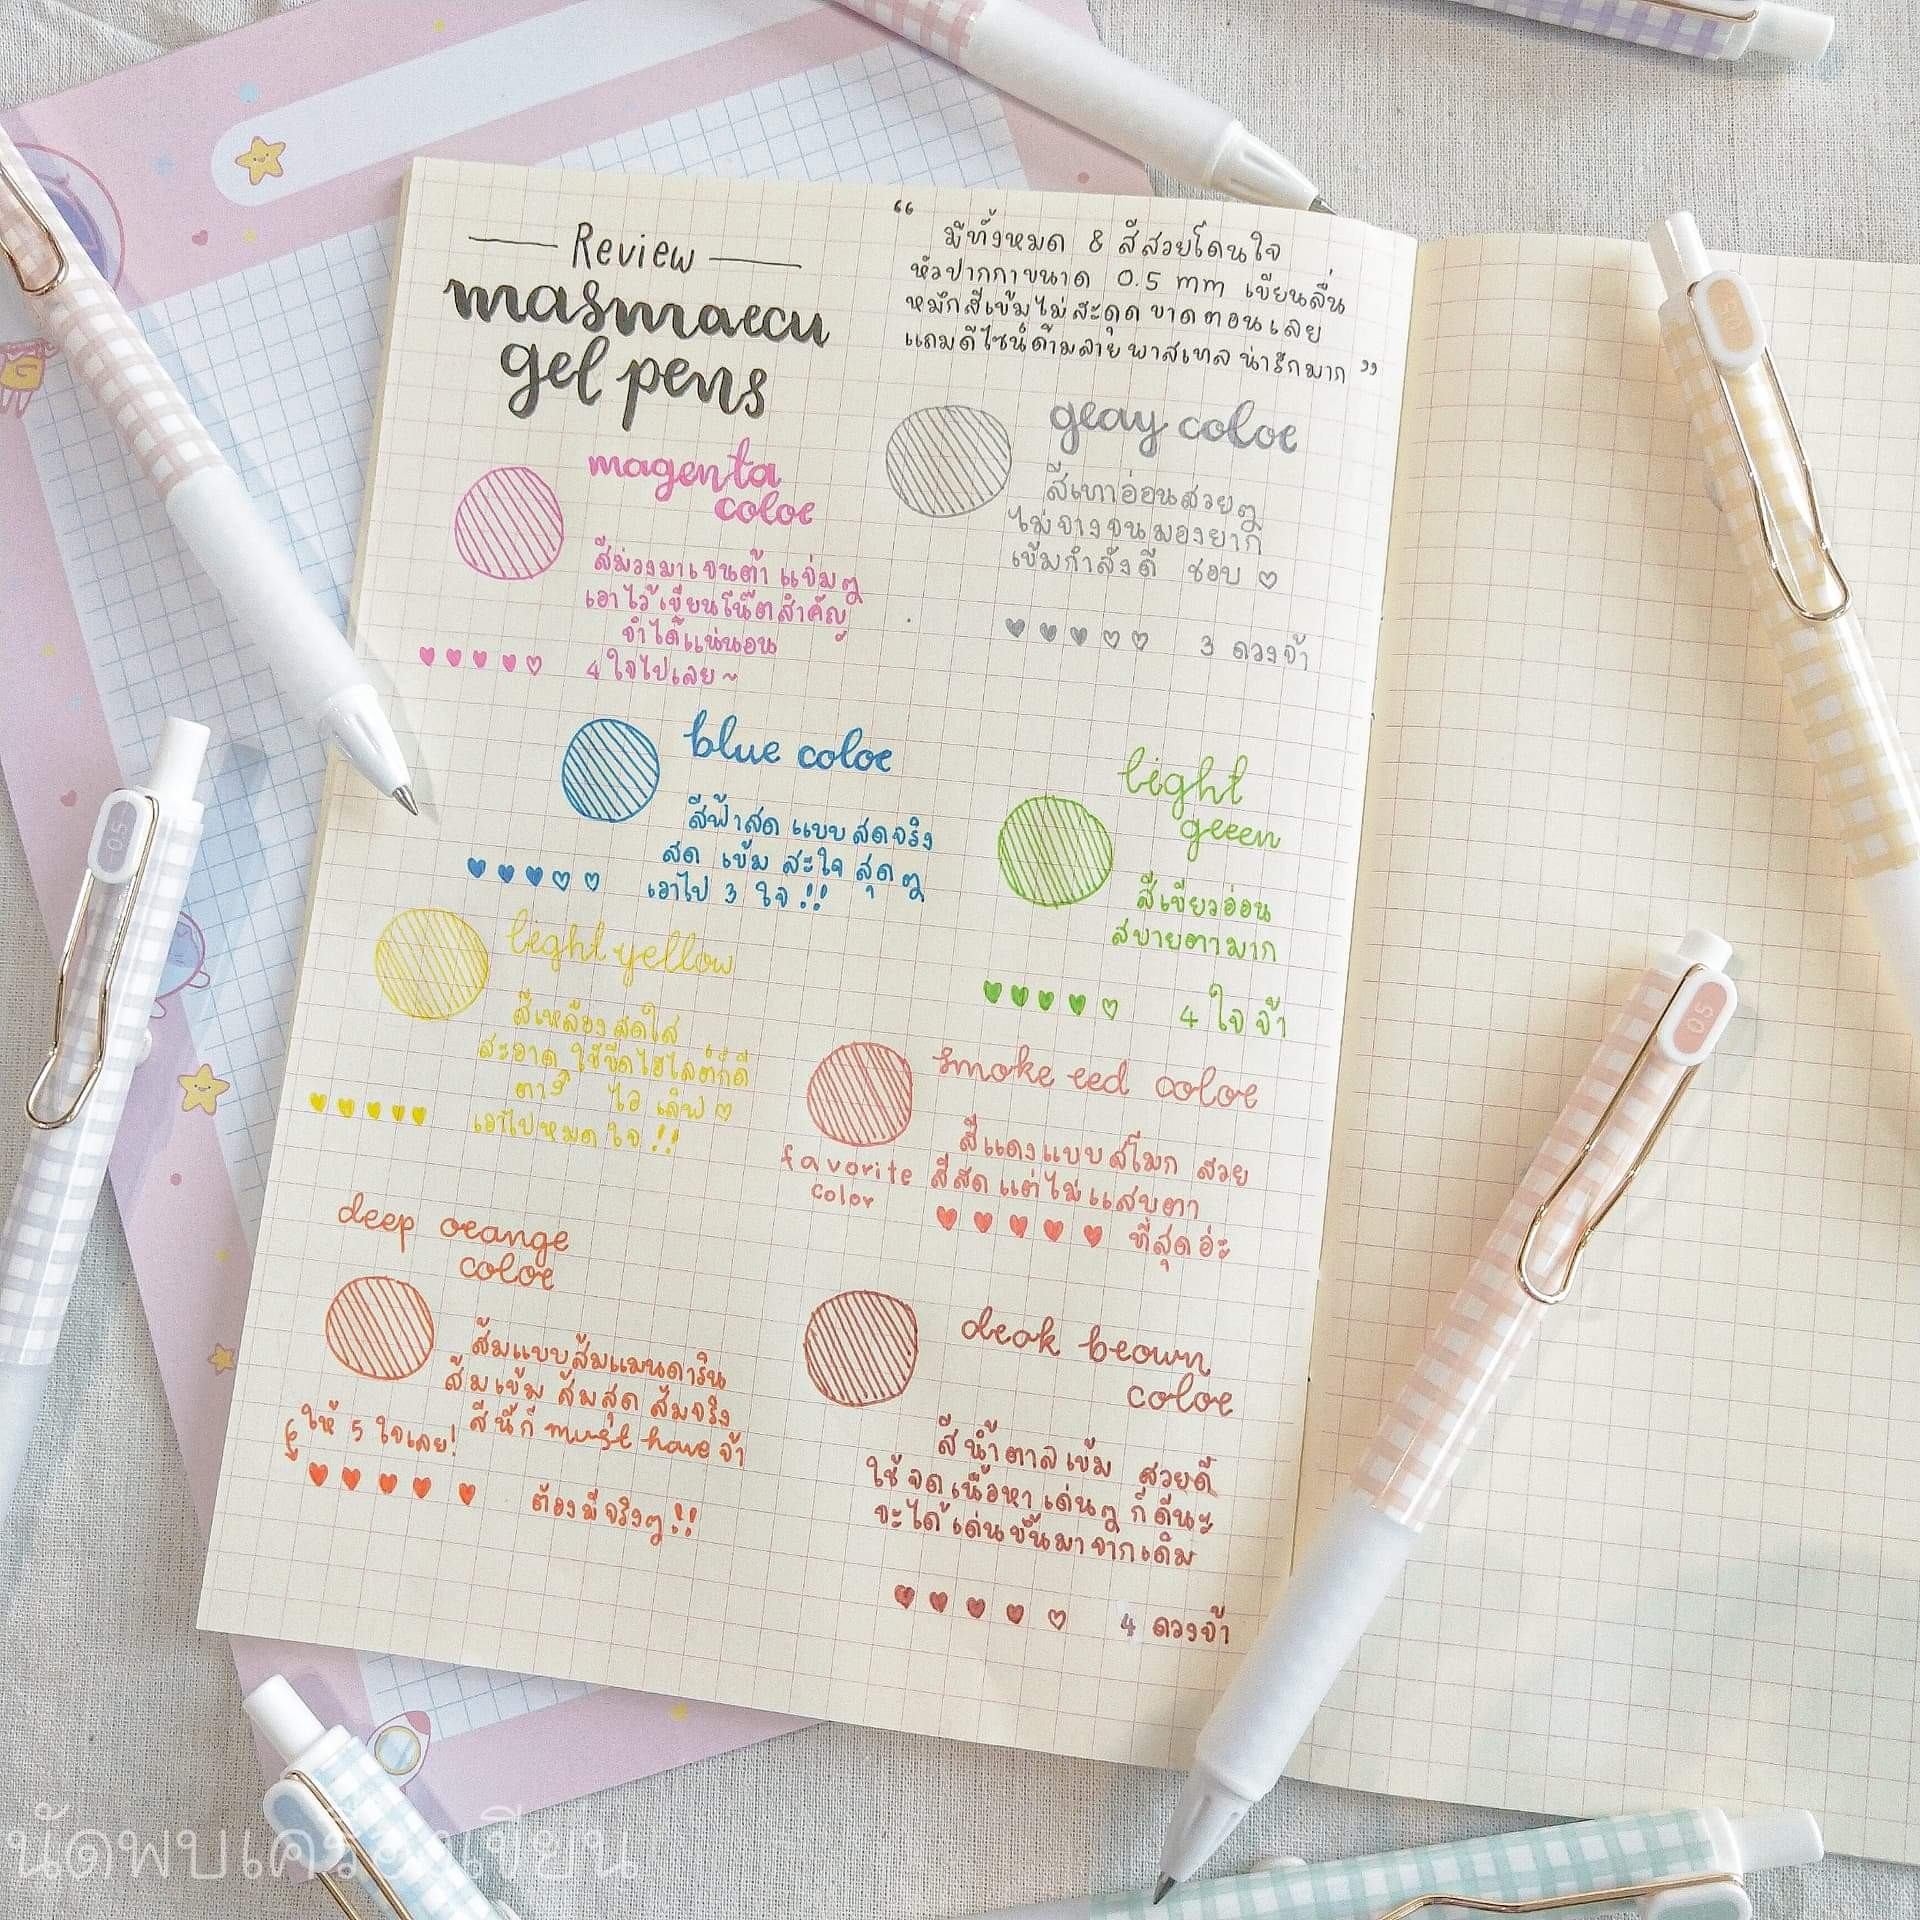 Review
masmarcu
gel pens
“ มีทั้งหมด 8 สีสวยโดนใจ
หัวปากกาขนาด 0.5 mm เขียนลื่น
หมึกสีเข้มไม่สะดุด ขาดตอนเลย
แถมดีไซน์ด้ามลายพาสเทล น่ารักมาก ”
magenta
color
สีม่วงมาเจนต้า แจ่มๆ
เอาไว้เขียนโน๊ตสำคัญ
จำได้แน่นอน
4 ใจไปเลย~
gray color
สีเทาอ่อนสวยๆ
ไม่จางจนมองยาก
เข้มกำลังดี ชอบ ♡
3 ดวงจ้า
blue color
สีฟ้าสด แบบ สดจริง
สด เข้ม สะใจ สุดๆ
เอาไป 3 ใจ !!
light
green
สีเขียวอ่อน
สบายตามาก
4 ใจ จ้า
light yellow
สีเหลืองสดใส
สะอาด ใช้ขีดไฮไลต์ก็ดี
ตาร์ ไอ เลิฟ ♡
เอาไปหมดใจ !!
smoke red color
สีแดงแบบสโมก สวย
favorite
color
สีสัด แต่ไม่แสบตา
ที่สุดอ่ะ
deep orange
color
ส้มแบบส้มแมนดาริน
ส้มเข้ม ส้มสุด ส้มจริง
สีนี้ก็ must have จ้า
ให้ 5 ใจเลย!
ต้องมีจริงๆ !!
dark brown
color
สีน้ำตาลเข้ม สวยดี
ใช้จดเนื้อหาเด่นๆ ก็ดีนะ
จะได้เด่นขึ้นมาจากเดิม
4 ดวงจ้า
0.5
0.5
0.5
นัดพบเครื่องเขียน